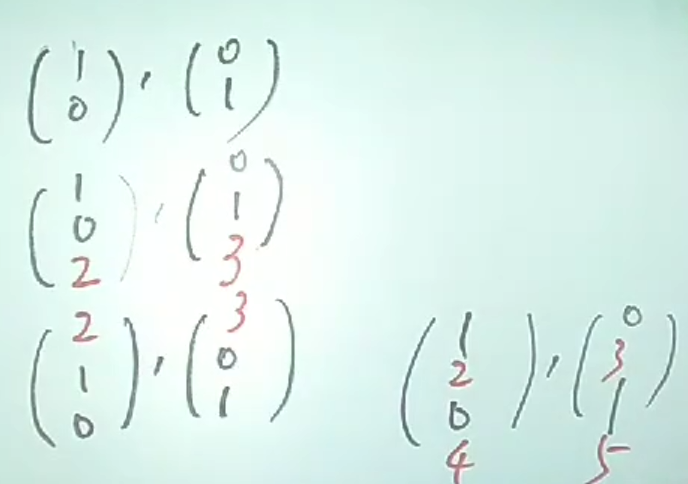 (1 0), (0 1)
(1 0 2), (0 1 3)
(2 1 0), (3 0 1)
(1 2 0 4), (0 3 1 5)